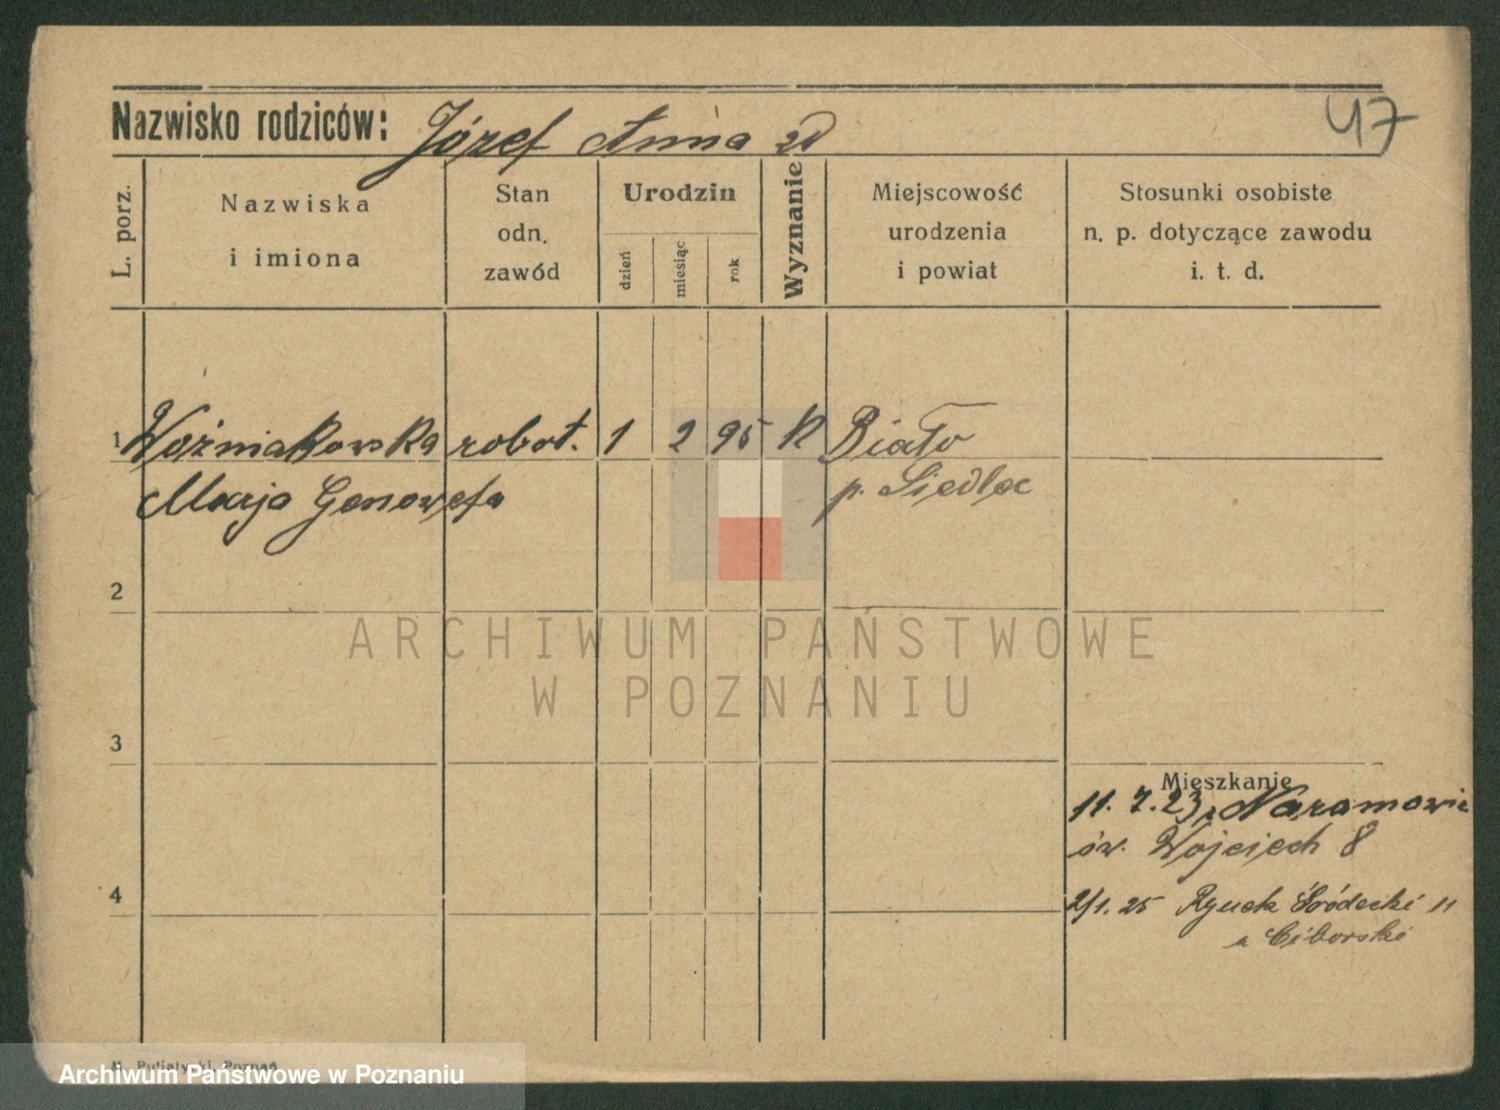 Nazwisko rodziców: Józef Anna
47
L. porz.
Nazwiska
i imiona
Stan
odn.
zawód
Urodzin
dzień
miesiąc
rok
Wyznanie
Miejscowość
urodzenia
i powiat
Stosunki osobiste
n. p. dotyczące zawodu
i. t. d.
1 Woźniakowska robot. 1 2 95 K Biało
Marja Genowefa p. Siedlec
2
ARCHIWUM PAŃSTWOWE
W POZNANIU
3
Mieszkanie
11. 7. 23, Naramowic
św. Wojciech 8
4
2/1. 25 Rynek Śródecki 11
a Ciborski
Poznań
Archiwum Państwowe w Poznaniu